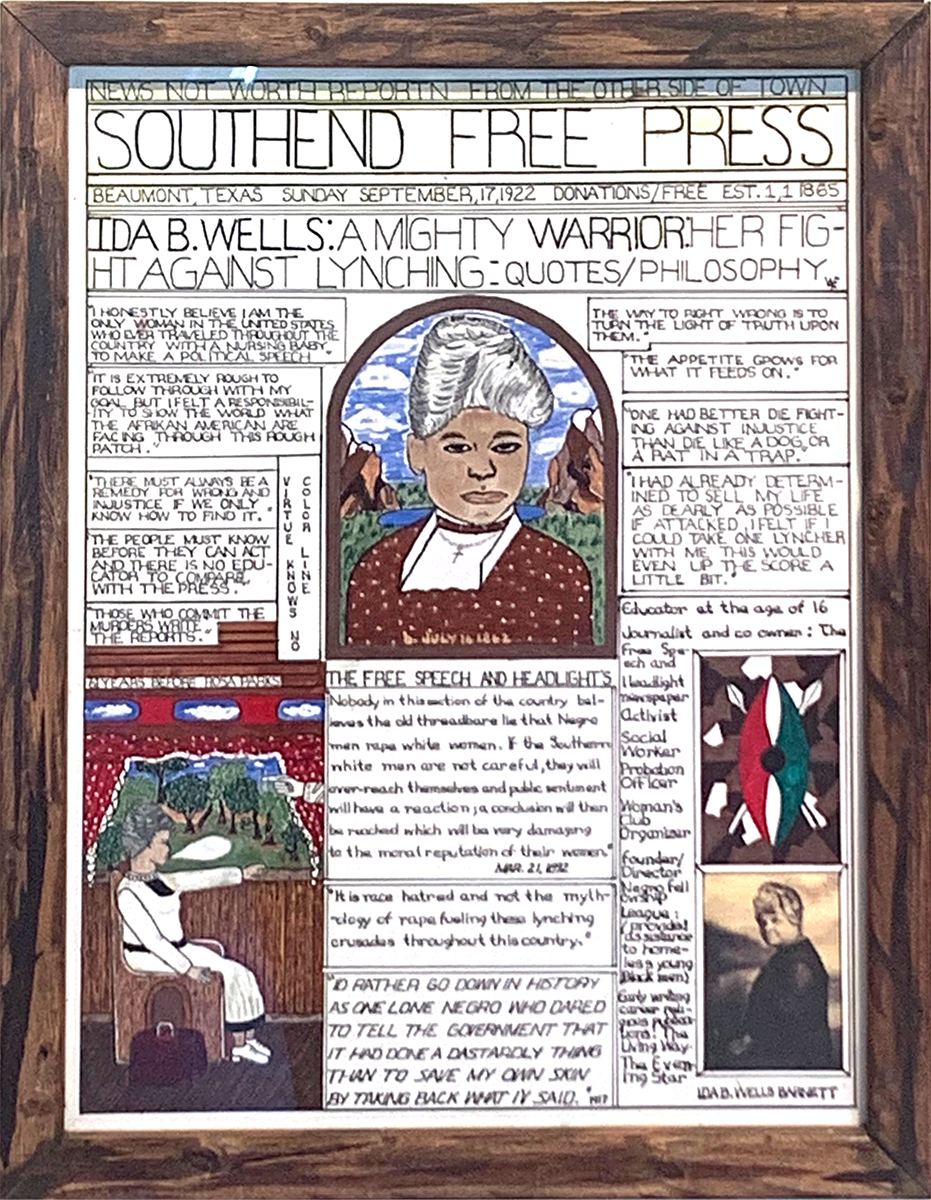 NEWS NOT WORTH REPORTN FROM THE OTHER SIDE OF TOWN
SOUTHEND FREE PRESS
BEAUMONT, TEXAS SUNDAY SEPTEMBER,17,1922 DONATIONS/FREE EST. 1,1 1865
IDA B. WELLS: A MIGHTY WARRIOR: HER FIG-
HT AGAINST LYNCHING - QUOTES/PHILOSOPHY
"I HONESTLY BELIEVE I AM THE
ONLY WOMAN IN THE UNITED STATES
WHO EVER TRAVELED THROUGHOUT THE
COUNTRY WITH A NURSING BABY
TO MAKE A POLITICAL SPEECH"
IT IS EXTREMELY ROUGH TO
FOLLOW THROUGH WITH MY
GOAL, BUT I FELT A RESPONSIBIL-
ITY TO SHOW THE WORLD WHAT
THE AFRIKAN AMERICAN ARE
FACING THROUGH THIS ROUGH
PATCH."
"THERE MUST ALWAYS BE A
REMEDY FOR WRONG AND
INJUSTICE IF WE ONLY
KNOW HOW TO FIND IT."
"THE PEOPLE MUST KNOW
BEFORE THEY CAN ACT
AND THERE IS NO EDU-
CATOR TO COMPARE
WITH THE PRESS."
"THOSE WHO COMMIT THE
MURDERS WRITE
THE REPORTS."
VIRTUE KNOWS NO
COLOR LINE
YEARS BEFORE ROSA PARKS
B. JULY 16 1862
THE FREE SPEECH AND HEADLIGHT'S
Nobody in this section of the country bel-
ieves the old threadbare lie that Negro
men rape white women. If the Southern
white men are not careful, they will
over-reach themselves and public sentiment
will have a reaction; a conclusion will then
be reached which will be very damaging
to the moral reputation of their women."
MAR. 21, 1892
"It is race hatred and not the myth-
ology of rape fueling these lynching
crusades throughout this country."
"I'D RATHER GO DOWN IN HISTORY
AS ONE LONE NEGRO WHO DARED
TO TELL THE GOVERNMENT THAT
IT HAD DONE A DASTARDLY THING
THAN TO SAVE MY OWN SKIN
BY TAKING BACK WHAT IV SAID." 1917
THE WAY TO RIGHT WRONG IS TO
TURN THE LIGHT OF TRUTH UPON
THEM."
"THE APPETITE GROWS FOR
WHAT IT FEEDS ON."
"ONE HAD BETTER DIE FIGHT-
ING AGAINST INJUSTICE
THAN DIE LIKE A DOG OR
A RAT IN A TRAP."
"I HAD ALREADY DETERM-
INED TO SELL MY LIFE
AS DEARLY AS POSSIBLE
IF ATTACKED, I FELT IF I
COULD TAKE ONE LYNCHER
WITH ME, THIS WOULD
EVEN UP THE SCORE A
LITTLE BIT."
Educator at the age of 16
Journalist and co owner: The
Free Spe-
ech and
Headlight
newspaper
Activist
Social
Worker
Probation
Officer
Woman's
Club
Organizer
Founder/
Director
Negro Fell
owship
League:
(provided
assistance
to home-
less young
Black men)
Early writing
career reli-
gious publica-
tions: The
Living Way
The Even-
ing Star
IDA B. WELLS BARNETT